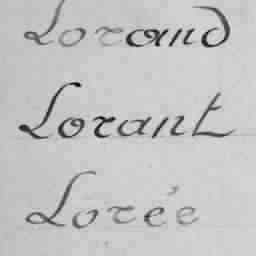 Lorand
Lorant
Lorée